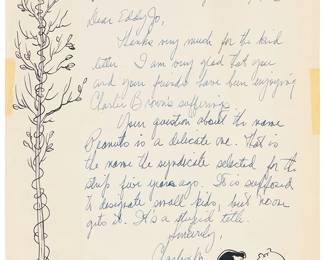 Dear Eddy Jo,
Thanks very much for the kind
letter. I am very glad that you
and your friends have been enjoying
Charlie Brown's sufferings.
Your question about the name
Peanuts is a delicate one. That is
the name the syndicate selected for the
strip five years ago. It is supposed
to designate small kids, but no one
gets it. It's a stupid title.
Sincerely,
Charles M.